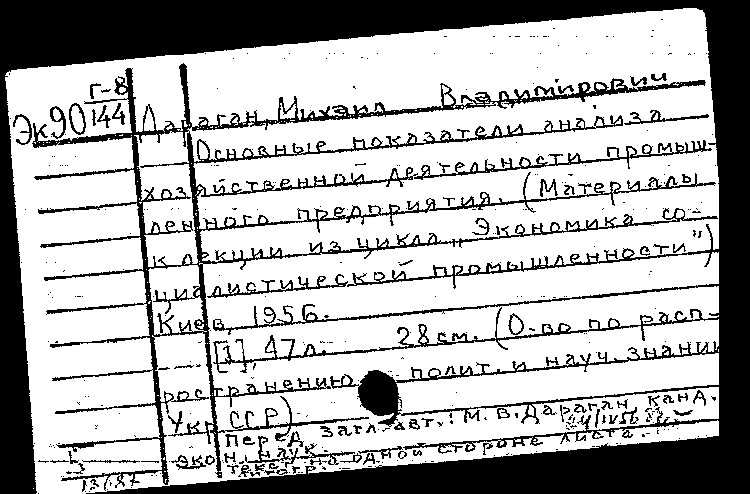 Г-8
Эк90 144
Дараган, Михаил Владимирович
Основные показатели анализа
хозяйственной деятельности промыш-
ленного предприятия. (Материалы
к лекции из цикла „Экономика со-
циалистической промышленности")
Киев, 1956.
[1], 47 л. 28 см. (О-во по расп-
ространению полит. и науч. знаний
Укр. ССР)
Перед загл. авт.: М. В. Дараган, канд.
экон. наук.
Текст на одной стороне листа.
Б